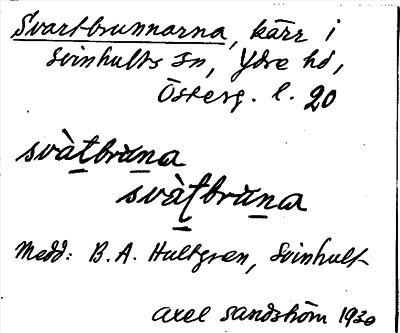 Svartbrunnarna, kärr i
Svinhults sn, Ydre hd,
Österg. l. 20
svàt̲brùn̲a
svàt̲brùn̲a
Medd: B. A. Hultgren, Svinhult
Axel Sandström 1930